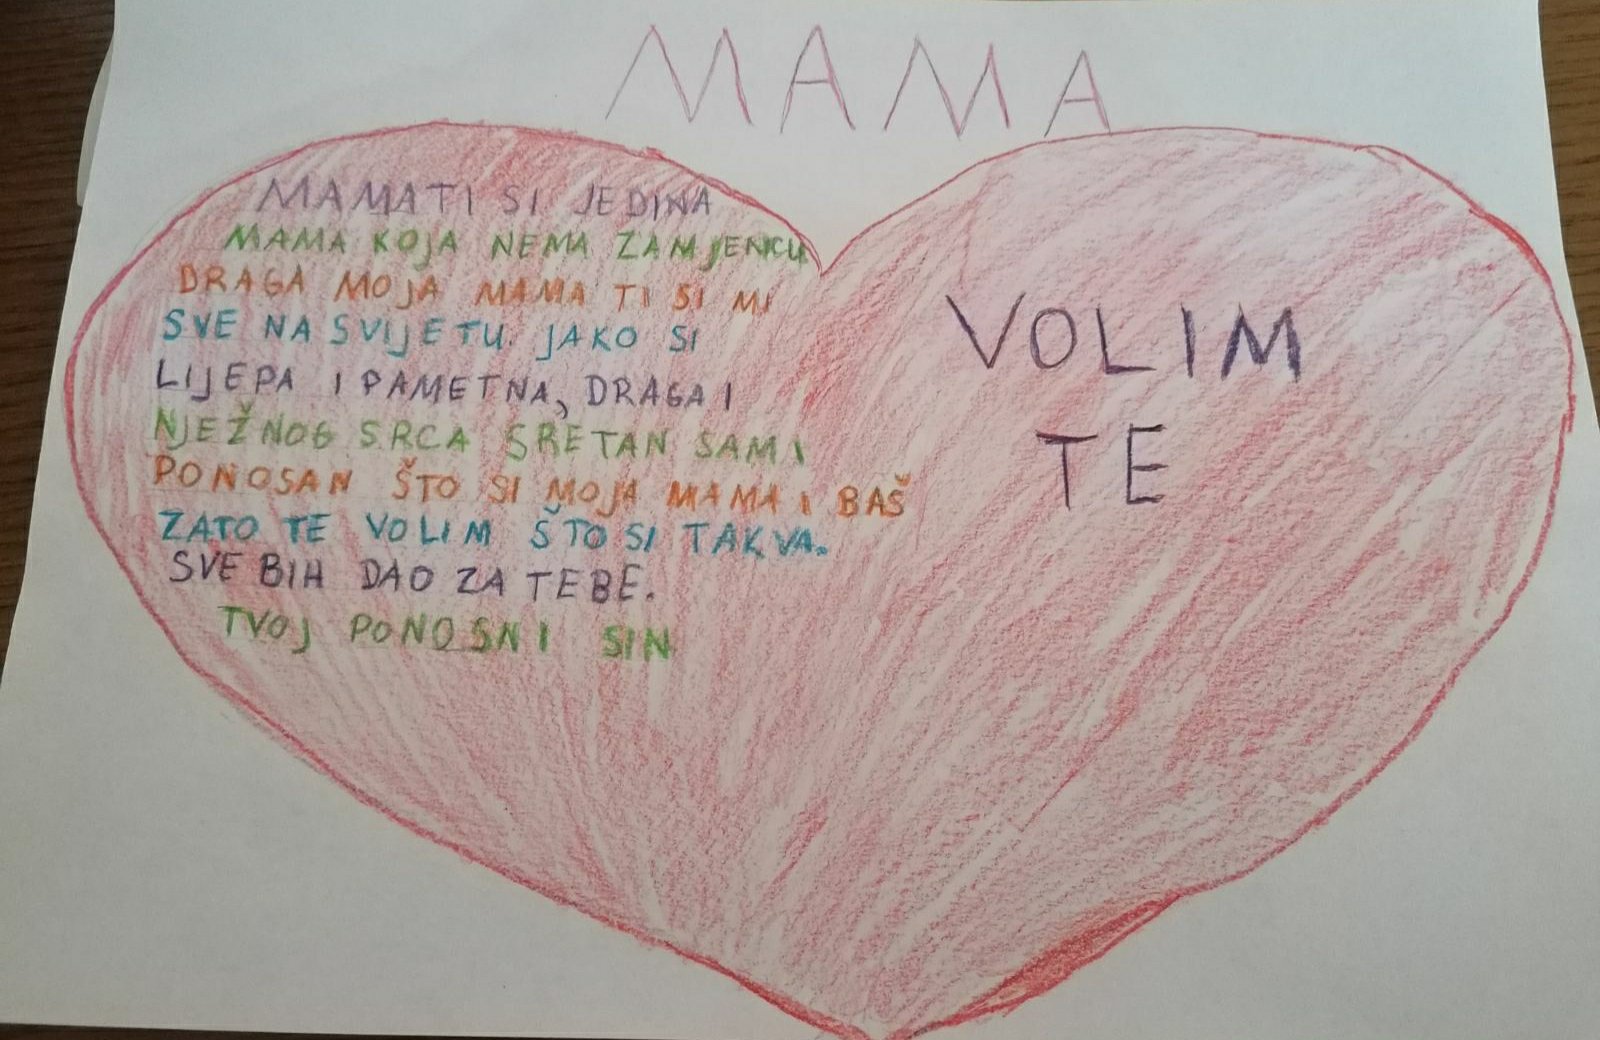 MAMA
MAMA TI SI JEDINA
MAMA KOJA NEMA ZAMJENKU
DRAGA MOJA MAMA TI SI MI
SVE NA SVIJETU. JAKO SI
LIJEPA I PAMETNA, DRAGA I
NJEŽNOG SRCA SRETAN SAM I
PONOSAN ŠTO SI MOJA MAMA I BAŠ
ZATO TE VOLIM ŠTO SI TAKVA.
SVE BIH DAO ZA TEBE.
TVOJ PONOSNI SIN
VOLIM
TE